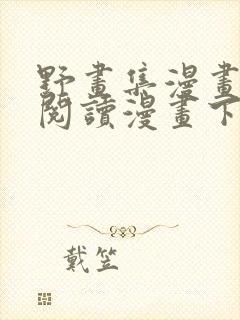 野畫集漫畫
閱讀漫畫下
戴笠